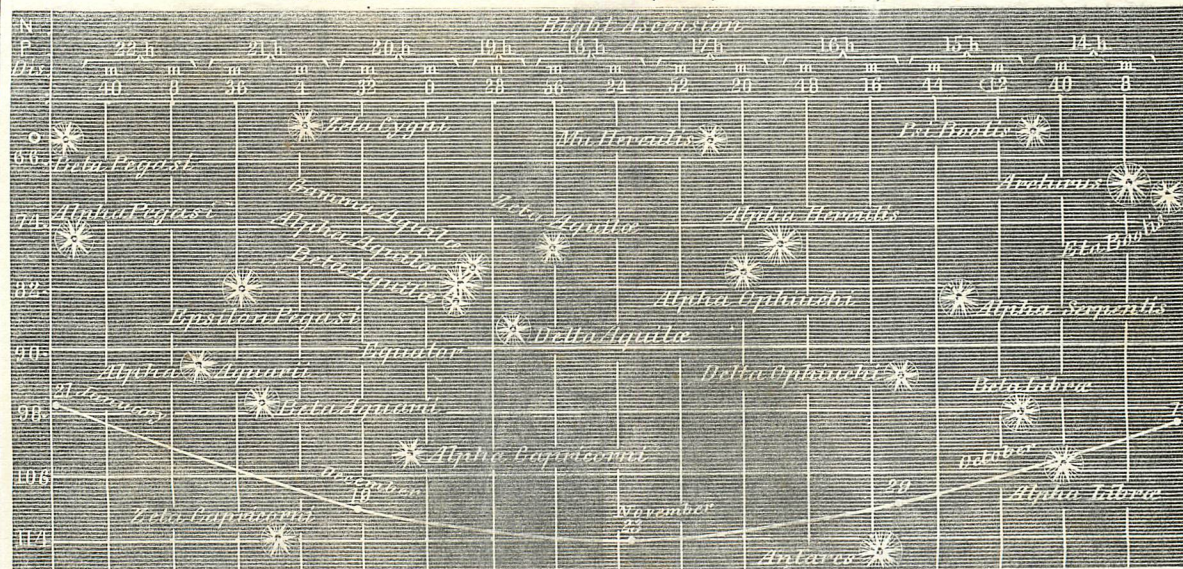 N
P
Dis
Right Ascension
22,h 21,h 20,h 19,h 18,h 17,h 16,h 15,h 14,h
m m m m m m m m m m m m m m m m m
40 8 36 4 32 0 28 36 24 32 20 48 16 44 12 40 8
o
66
Beta Pegasi
Zeta Cygni
Mu Herculis
Psi Bootis
Arcturus
74
Alpha Pegasi
Gamma Aquilæ
Alpha Aquilæ
Beta Aquilæ
Zeta Aquilæ
Alpha Herculis
Eta Bootis
82
Epsilon Pegasi
Alpha Ophiuchi
Alpha Serpentis
Delta Aquilæ
90
Equator
Alpha Aquarii
Delta Ophiuchi
Beta Libræ
98
21 January
Beta Aquarii
Alpha Capricorni
October
106
December
19
20
Alpha Libræ
Zeta Capricorni
November
23
114
Antares